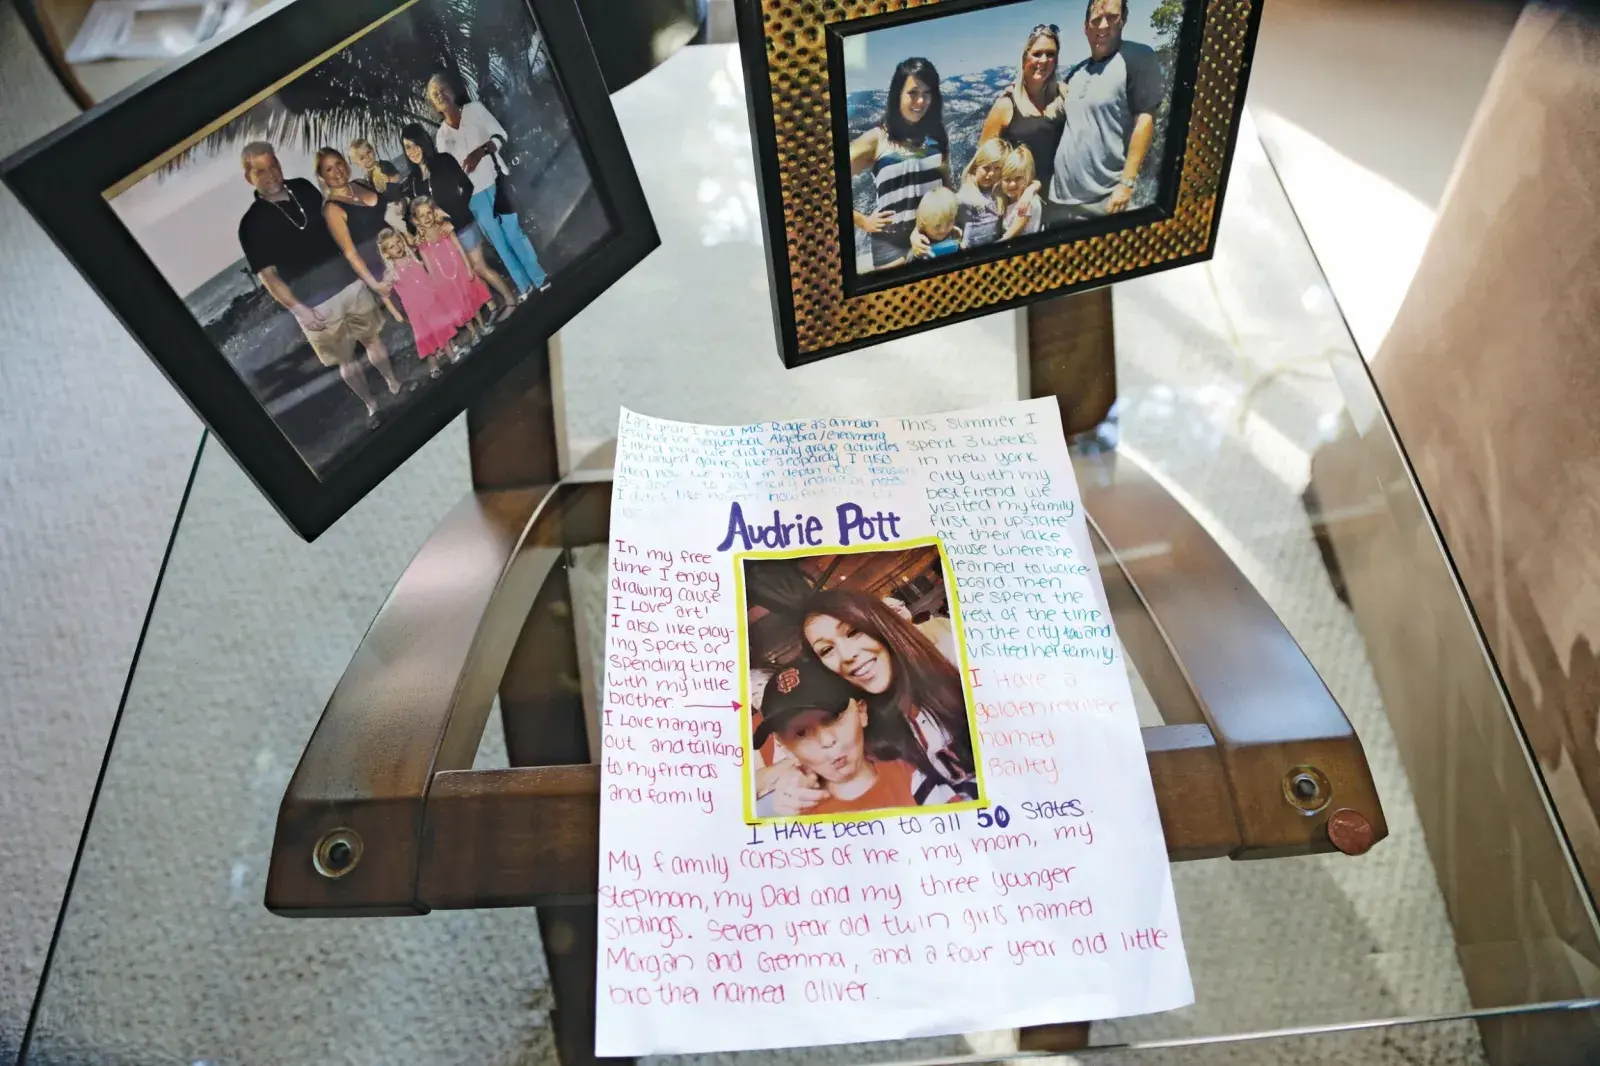 Last year I had Mrs. Ridge as a math
teacher for sequential Algebra/Geometry
I liked how we did many group activities
and played games like Jeopardy I also
liked how we had in depth
This summer I
spent 3 weeks
in new york
city with my
best friend we
visited my family
first in upstate
at their lake
house where she
learned to wake
board. Then
we spent the
rest of the time
in the city and
visited her family.
Audrie Pott
In my free
time I enjoy
drawing cause
I Love art!
I also like play-
ing sports or
spending time
with my little
brother.
I Love hanging
out and talking
to my friends
and family
I Have a
golden retriever
named
Bailey
I HAVE been to all 50 States.
My family consists of me, my mom, my
stepmom, my Dad and my three younger
siblings. Seven year old twin girls named
Morgan and Gemma, and a four year old little
brother named Oliver.